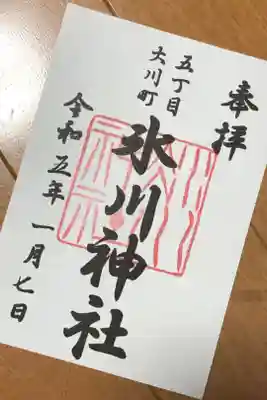 奉拝
五丁目
大川町
氷川神社
令和五年 一月七日